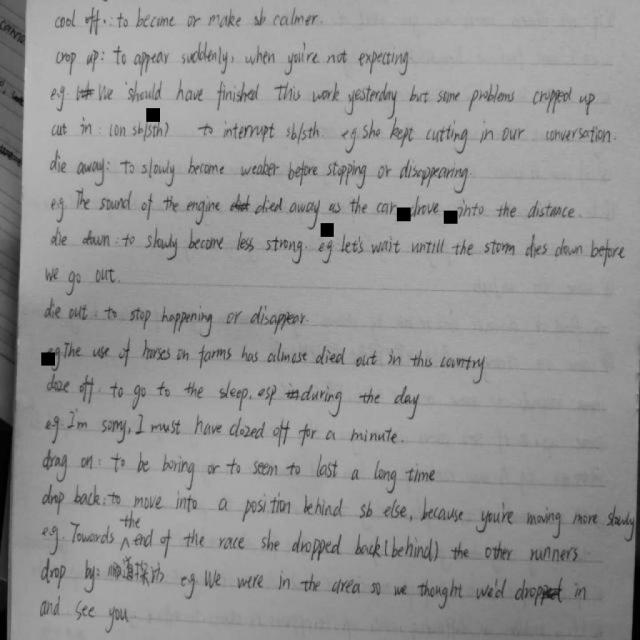 cool off: to become or make sb calmer.
crop up: to appear suddenly, when you're not expecting
eg We should have finished this work yesterday but some problems cropped up
cut in: (on sb/sth) to interrupt sb/sth. eg She kept cutting in our conversation.
die away: to slowly become weaker before stopping or disappearing.
eg The sound of the engine died away as the car drove into the distance.
die down: to slowly become less strong. eg let's wait untill the storm dies down before
we go out.
die out: to stop happening or disappear.
eg The use of horses on farms has almose died out in this country
doze off: to go to the sleep, esp during the day
eg I'm sorry, I must have dozed off for a minute.
drag on: to be boring or to seen to last a long time
drop back: to move into a position behind sb else, because you're moving more slowly
e.g. Towards the end of the race she dropped back(behind) the other runners
drop by: 顺道探访 eg We were in the area so we thought we'd drop in
and see you